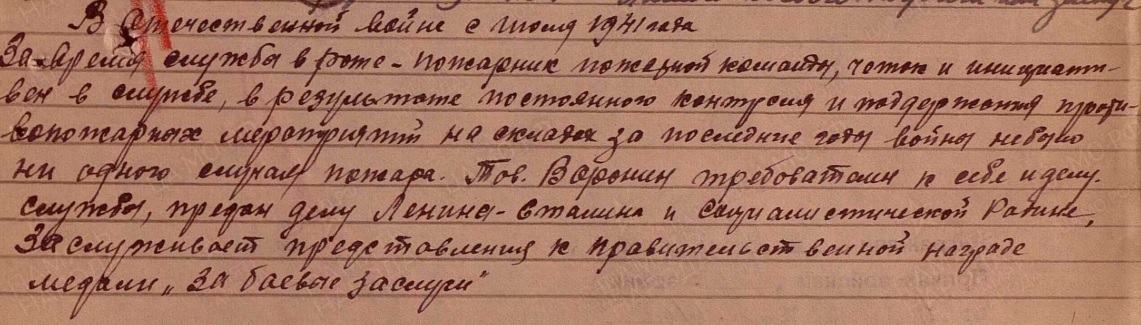 В Отечественной войне с июля 1941 года
За время службы в роте - пожарник пожарной команды, четок и инициати-
вен в службе, в результате постоянного контроля и поддержания проти-
вопожарных мероприятий на складах за последние годы войны небыло
ни одного случая пожара. Тов. Воронин требователен к себе и делу
службы, предан делу Ленина-Сталина и социалистической Родине,
Заслуживает представления к правительственной награде
медали „За боевые заслуги"